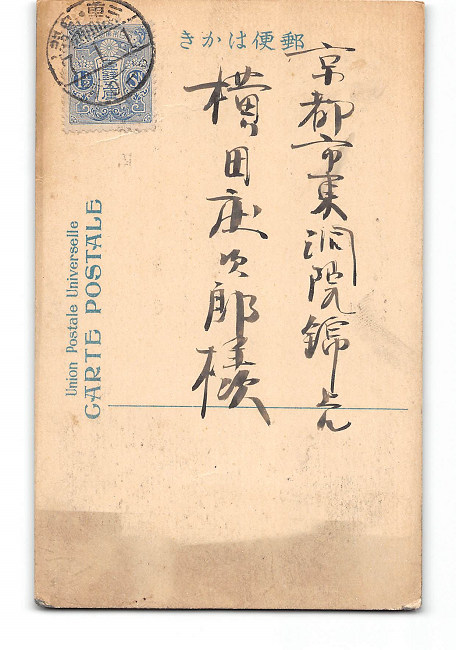 きかは便郵
京都市東洞院錦上ル
横田庄次郎様
Union Postale Universelle
CARTE POSTALE